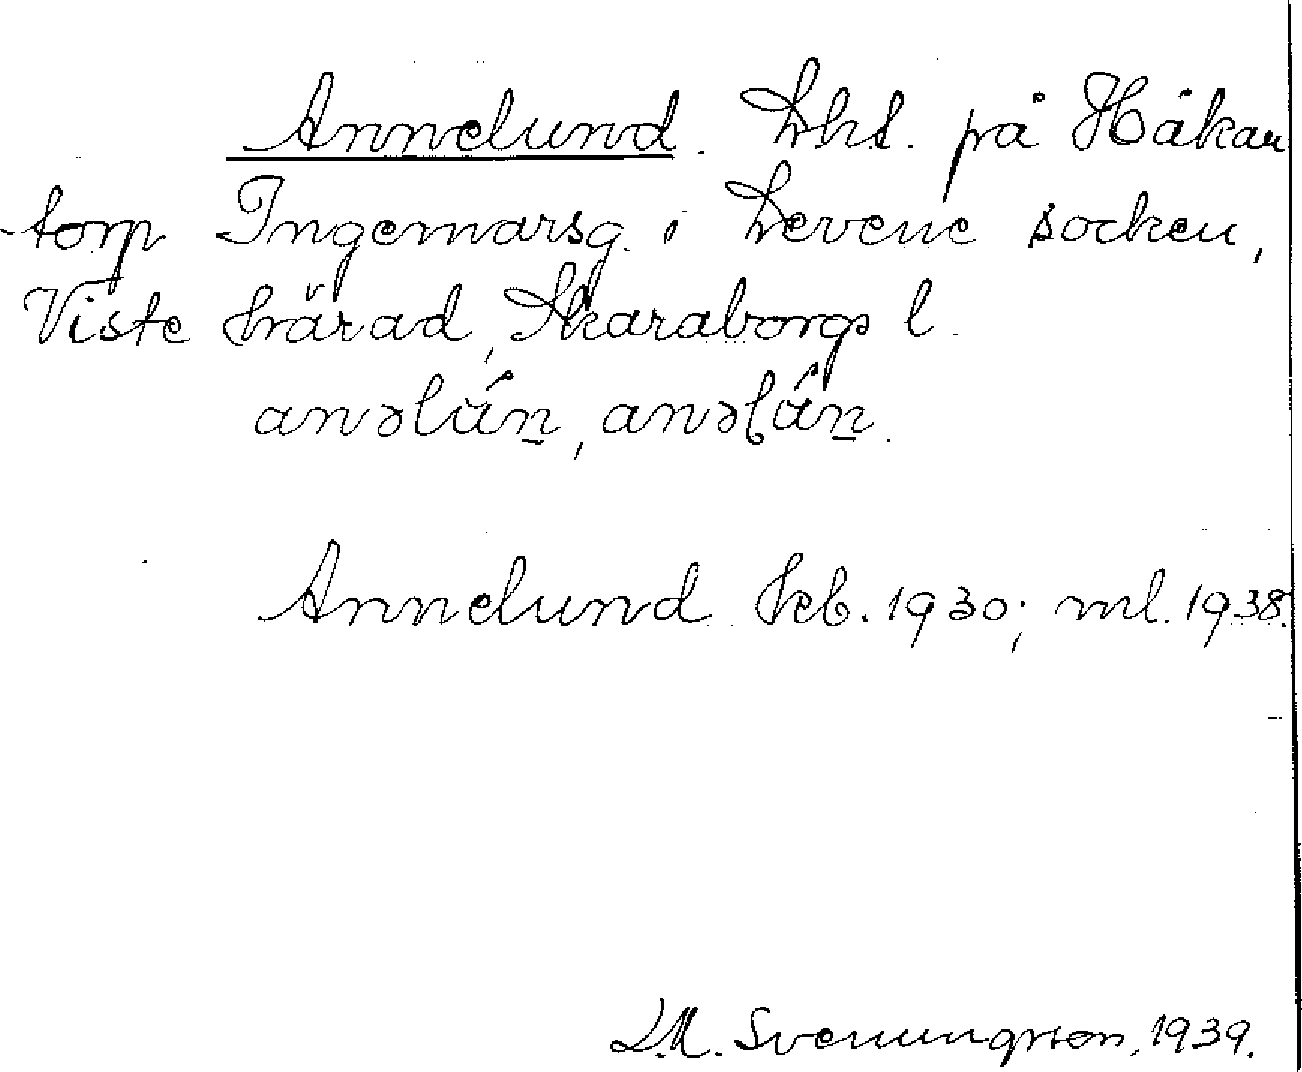 Annelund. Lht. på Håkan
torp Ingemarsg. i Levene socken,
Viste härad, Skaraborgs l.
anəlún̠, anəlûn̠.
Annelund heb. 1930; ml. 1938.
L.M. Svenungsson, 1939.